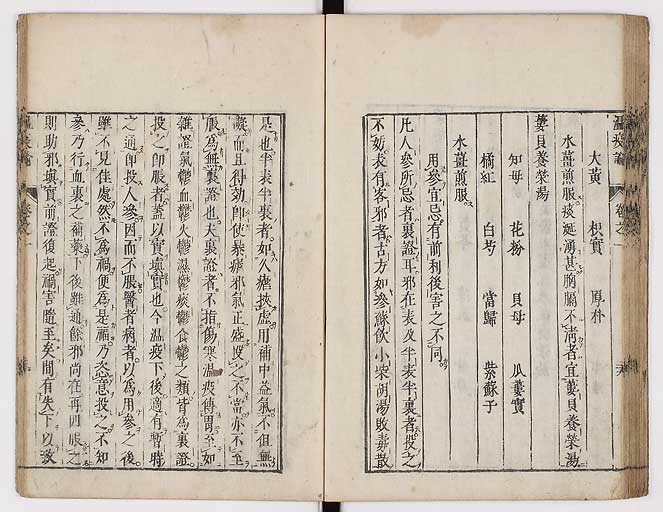 大黄　枳實　厚朴
水薑煎服痰涎湧甚胸膈不清者宜蔞貝養榮湯
蔞貝養榮湯
知母　花粉　貝母　瓜蔞實
橘紅　白芍　當歸　紫蘇子
水薑煎服
用參宜忌有前利後害之不同
凡人參所忌者裏證耳邪在表及半表半裏者投之
不妨表有客邪者古方如參蘇飲小柴胡湯敗毒散
是也半表半裏者如久瘧挾虛用補中益氣不但無
礙而且得効即使暴瘧邪氣正盛投之不當亦不至
脹為無裏證也夫裏證者不指傷寒温疫傳胃至如
雜證氣鬱血鬱火鬱濕鬱痰鬱食鬱之類皆為裏證
投之即脹者蓋以實填實也今温疫下後適有暫時
之通即投人參因而不脹醫者病者以為用參之後
雖不見佳處然不為禍便為是福乃恣意投之不知
參乃行血裏之補藥下後雖通餘邪尚在再四服之
則助邪填實前證復起禍害隨至矣間有失下以致
温疫論　卷之一